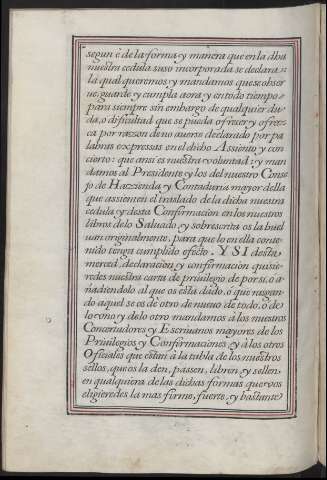 segun è de la forma y manera que en la dha
nuestra cedula suso incorporada se declara:
la qual queremos y mandamos que se obser
ue, guarde y cumpla aora y en todo tiempo
para siempre sin embargo de qualquier du
da, o dificultad que se pueda ofrecer y ofrez
ca por razzon de no auerse declarado por pa
labras expressas en el dicho Assiento y con
cierto: que ansi es nuestra voluntad: y man
damos al Presidente y los del nuestro Conse
jo de Hazzienda y Contaduria mayor della
que assienten el traslado de la dicha nuestra
cedula y desta Confirmación en los nuestros
libros de lo Saluado y sobrescrita os la buel
uan originalmente, para que lo en ella conte
nido tenga cumplido efecto. Y SI desta
merced, declaracion y confirmacion quisie
redes nuestra carta de priuilegio de por si, o a
ñadiendolo al que os està dado, ò que rasgan
do aquel se os dè otro de nueuo de todo, ò de
lo vno y de lo otro mandamos à los nuestros
Concertadores y Escriuanos mayores de los
Priuilegios y Confirmaciones, y à los otros
Oficiales que estàn à la tabla de los nuestros
sellos, que os la den, passen, libren y sellen,
en qualquiera de las dichas formas que vos
eligieredes la mas firme, fuerte, y bastante